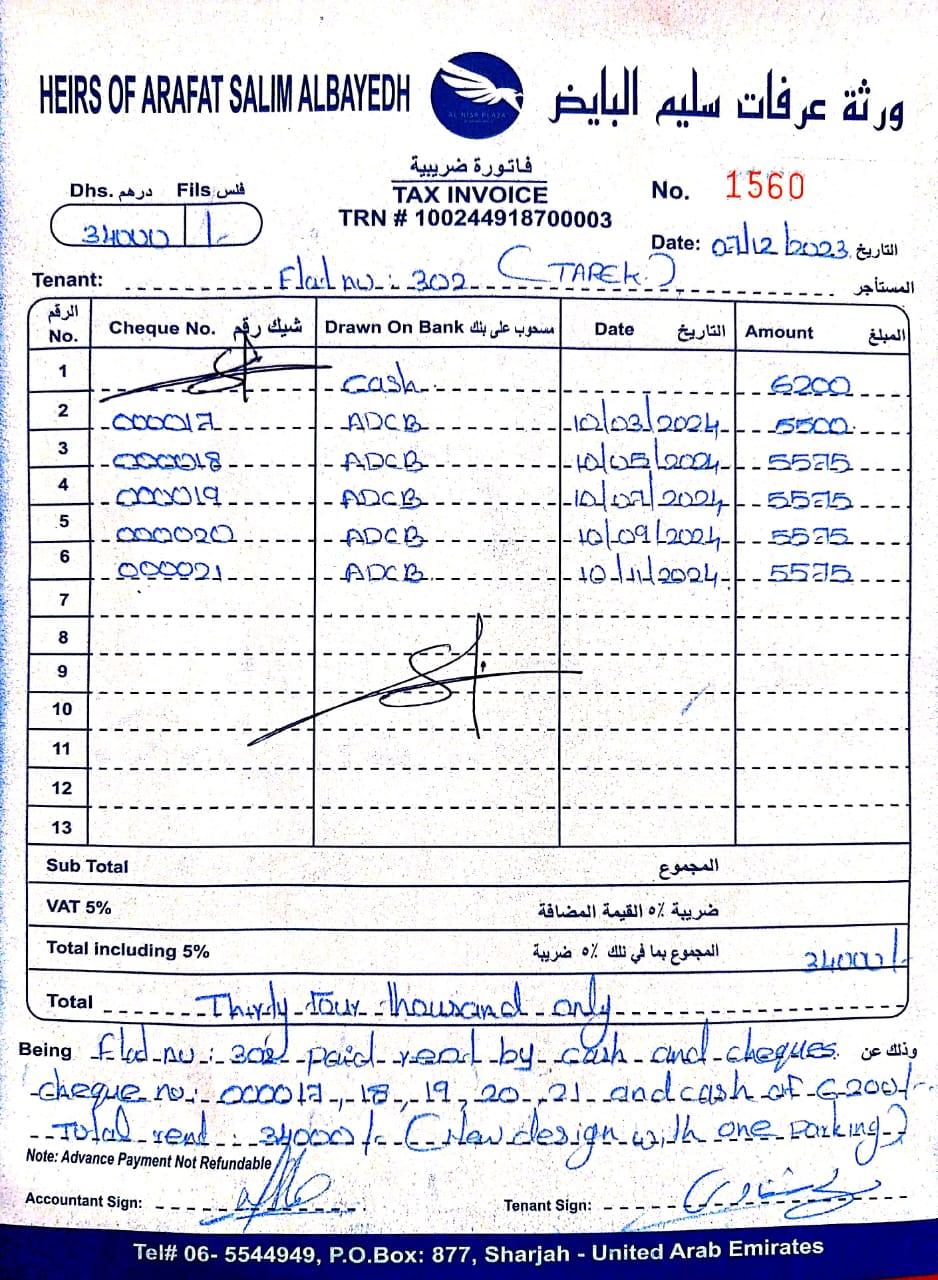 HEIRS OF ARAFAT SALIM ALBAYEDH
AL NISR PLAZA
ورثة عرفات سليم البايض
فاتورة ضريبية
TAX INVOICE
TRN # 100244918700003
No. 1560
Dhs. درهم Fils فلس
34000 /-
Date: 07/12/2023 التاريخ
Tenant: Flat no : 302 (TAREK) المستأجر
الرقم No. Cheque No. شيك رقم Drawn On Bank مسحوب على بنك Date التاريخ Amount المبلغ
1 Cash 6200
2 000017 ADCB 10/03/2024 5500
3 000018 ADCB 10/05/2024 5575
4 000019 ADCB 10/07/2024 5575
5 000020 ADCB 10/09/2024 5575
6 000021 ADCB 10/11/2024 5575
7
8
9
10
11
12
13
Sub Total المجموع
VAT 5% ضريبة ٥٪ القيمة المضافة
Total including 5% المجموع بما في تلك ٥٪ ضريبة 34000/-
Total Thirty four thousand only
Being Flat no : 302 paid rent by cash and cheques. وذلك عن
cheque no: 000017, 18, 19, 20, 21 and cash of 6200/-
Total rent : 34000/- (New design with one parking)
Note: Advance Payment Not Refundable
Accountant Sign: Tenant Sign:
Tel# 06- 5544949, P.O.Box: 877, Sharjah - United Arab Emirates